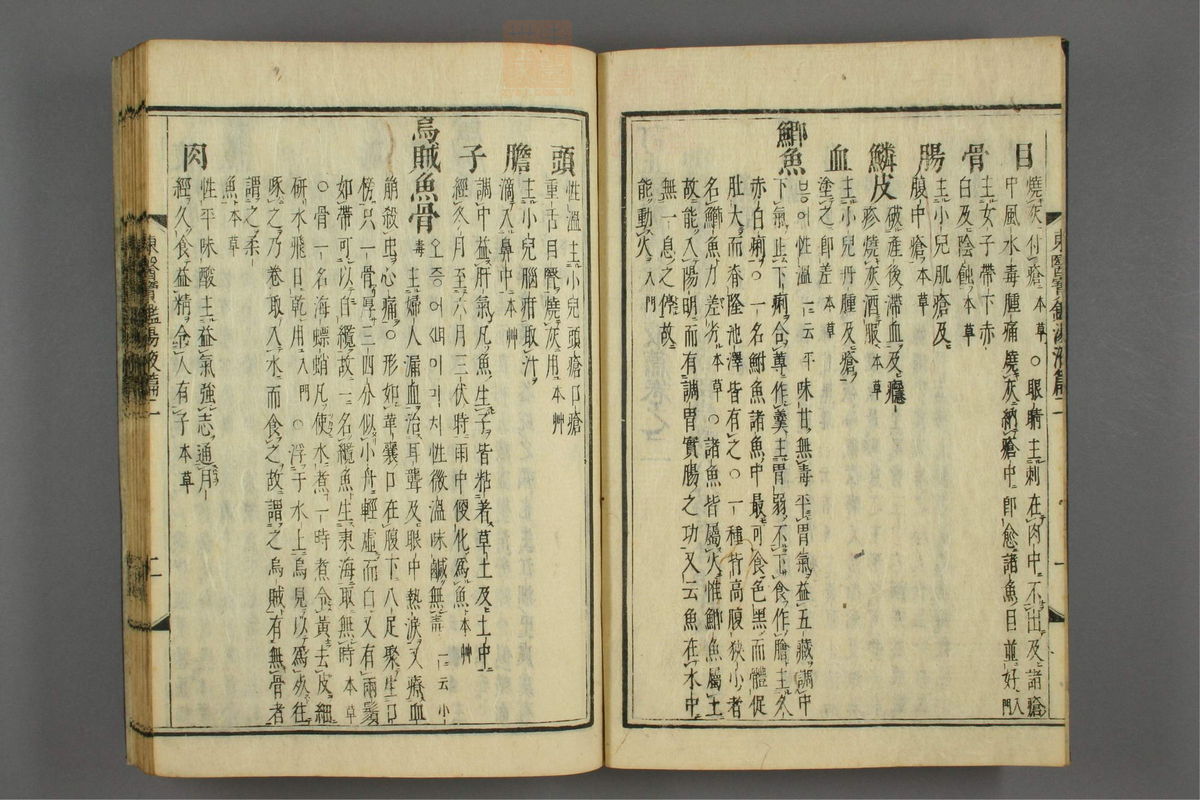 東醫寶鑑湯液篇二
目 燒灰付瘡 本草 ○眼睛主刺在肉中不出及諸瘡
中風水毒腫痛燒灰納瘡中卽愈諸魚目並好 入門
骨 主女子帶下赤
白及陰蝕 本草
腸 主小兒肌瘡及
腹中瘡 本草
鱗皮 破產後滯血及癮
疹燒灰酒服 本草
血 主小兒丹腫及瘡
塗之卽差 本草
鯽魚 붕어 性溫 一云平 味甘無毒平胃氣益五藏調中
下氣止下痢合蓴作羹主胃弱不下食作膾主久
赤白痢○一名鮒魚諸魚中最可食色黑而體促
肚大而脊隆池澤皆有之○一種背高腹狹小者
名鰤魚力差劣 本草 ○諸魚皆屬火惟鯽魚屬土
故能入陽明而有調胃實腸之功又云魚在水中
無一息之停故
能動火 入門
頭 性溫主小兒頭瘡口瘡
重舌目瞖燒灰用 本艸
膽 主小兒腦疳取汁
滴入鼻中 本艸
子 調中益肝氣凡魚生子皆粘著草上及土中
經冬月至六月三伏時雨中便化爲魚 本艸
烏賊魚骨 오증어뼈 미긔치 性微溫味鹹無毒 一云小
毒 主婦人漏血治耳聾及眼中熱淚又療血
崩殺虫心痛○形如革囊口在腹下八足聚生口
傍只一骨厚三四分似小舟輕虛而白又有兩鬚
如帶可以自纜故一名纜魚生東海取無時 本草
○骨一名海螵蛸凡使水煮一時煮令黃去皮細
硏水飛日乾用 入門 ○浮于水上烏見以爲死往
啄之乃卷取入水而食之故謂之烏賊有無骨者
謂之柔
魚 本草
肉 性平味酸主益氣強志通月
經久食益精令人有子 本草
東醫寶鑑湯液篇二
二